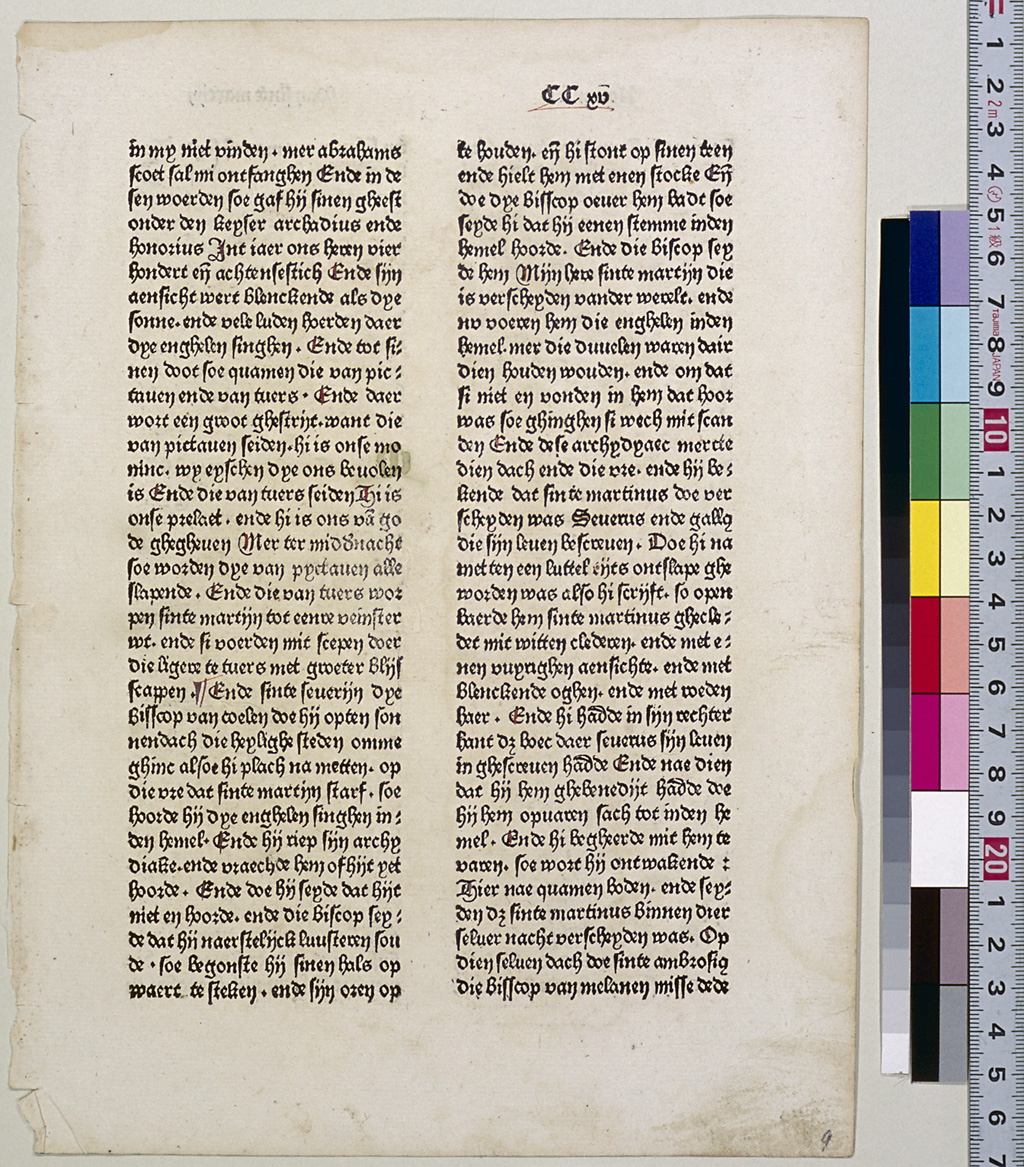 CC xv̄
in my niet vinden. mer abrahams
scoet sal mi ontfanghen Ende in de
sen woerden soe gaf hij sinen gheest
onder den keyser archadius ende
honorius Int iaer ons heren vier
hondert eñ achtensestich Ende sijn
aensicht wert blenckende als dye
sonne. ende vele luden hoerden daer
dye enghelen singhen. Ende tot si⸗
nen doot soe quamen die van pic⸗
tauen ende van tuers. Ende daer
wort een groot ghestrijt. want die
van pictauen seiden. hi is onse mo
ninc. wy eyschen dye ons beuolen
is Ende die van tuers seiden Hi is
onse prelaet. ende hi is ons vā go
de ghegheuen Mer ter middnacht
soe worden dye van pyctauen alle
slapende. Ende die van tuers wor
pen sinte martijn tot eenre veinster
wt. ende si voerden mit scepen doer
die ligere te tuers met groeter blijs
scappen. Ende sinte seuerijn dye
bisscop van coelen doe hij opten son
nendach die heylighe steden omme
ghinc alsoe hi plach na metten. op
die vre dat sinte martijn starf. soe
hoorde hij dye enghelen singhen in⸗
den hemel. Ende hij riep sijn archy
diake. ende vraechde hem of hijt yet
hoorde. Ende doe hij seyde dat hijt
niet en hoorde. ende die biscop sey⸗
de dat hij naerstelijck luusteren sou
de. soe begonste hij sinen hals op
waert te steken. ende sijn oren op
te houden. eñ hi stont op sinen teen
ende hielt hem met enen stocke Eñ
doe dye bisscop oeuer hem badt soe
seyde hi dat hij eenen stemme inden
hemel hoorde. Ende die biscop sey
de hem Mijn here sinte martijn die
is verscheyden vander werelt. ende
nv voeren hem die enghelen inden
hemel. mer die duuelen waren dair
dien houden wouden. ende om dat
si niet en vonden in hem dat hoor
was soe ghinghen si wech mit scan
den Ende dese archydyaec mercte
dien dach ende die vre. ende hij be⸗
kende dat sinte martinus doe ver
scheyden was Seuerus ende gallꝯ
die sijn leuen bescreuen. Doe hi na
metten een luttel tijts ontslape ghe
worden was also hi scrijft. so open
baerde hem sinte martinus ghecle⸗
det mit witten clederen. ende met e⸗
nen vuyrighen aensichte. ende met
blenckende oghen. ende met roeden
haer. Ende hi hādde in sijn rechter
hant dꝫ boec daer seuerus sijn leuen
in ghescreuen hādde Ende nae dien
dat hij hem ghebenedijt hādde doe
hij hem opuaren sach tot inden he
mel. Ende hi begheerde mit hem te
varen. soe wort hij ontwakende :
Hier nae quamen boden. ende sey⸗
den dꝫ sinte martinus binnen dier
seluer nacht verscheyden was. Op
dien seluen dach doe sinte ambrosiꝯ
die bisscop van melanen misse dede
9